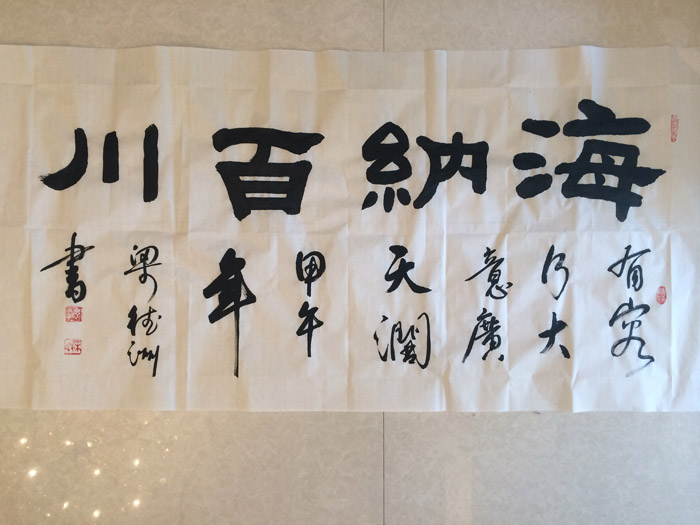 海納百川
有容
乃大
意廣
天濶
甲午
年
梁 洲
書